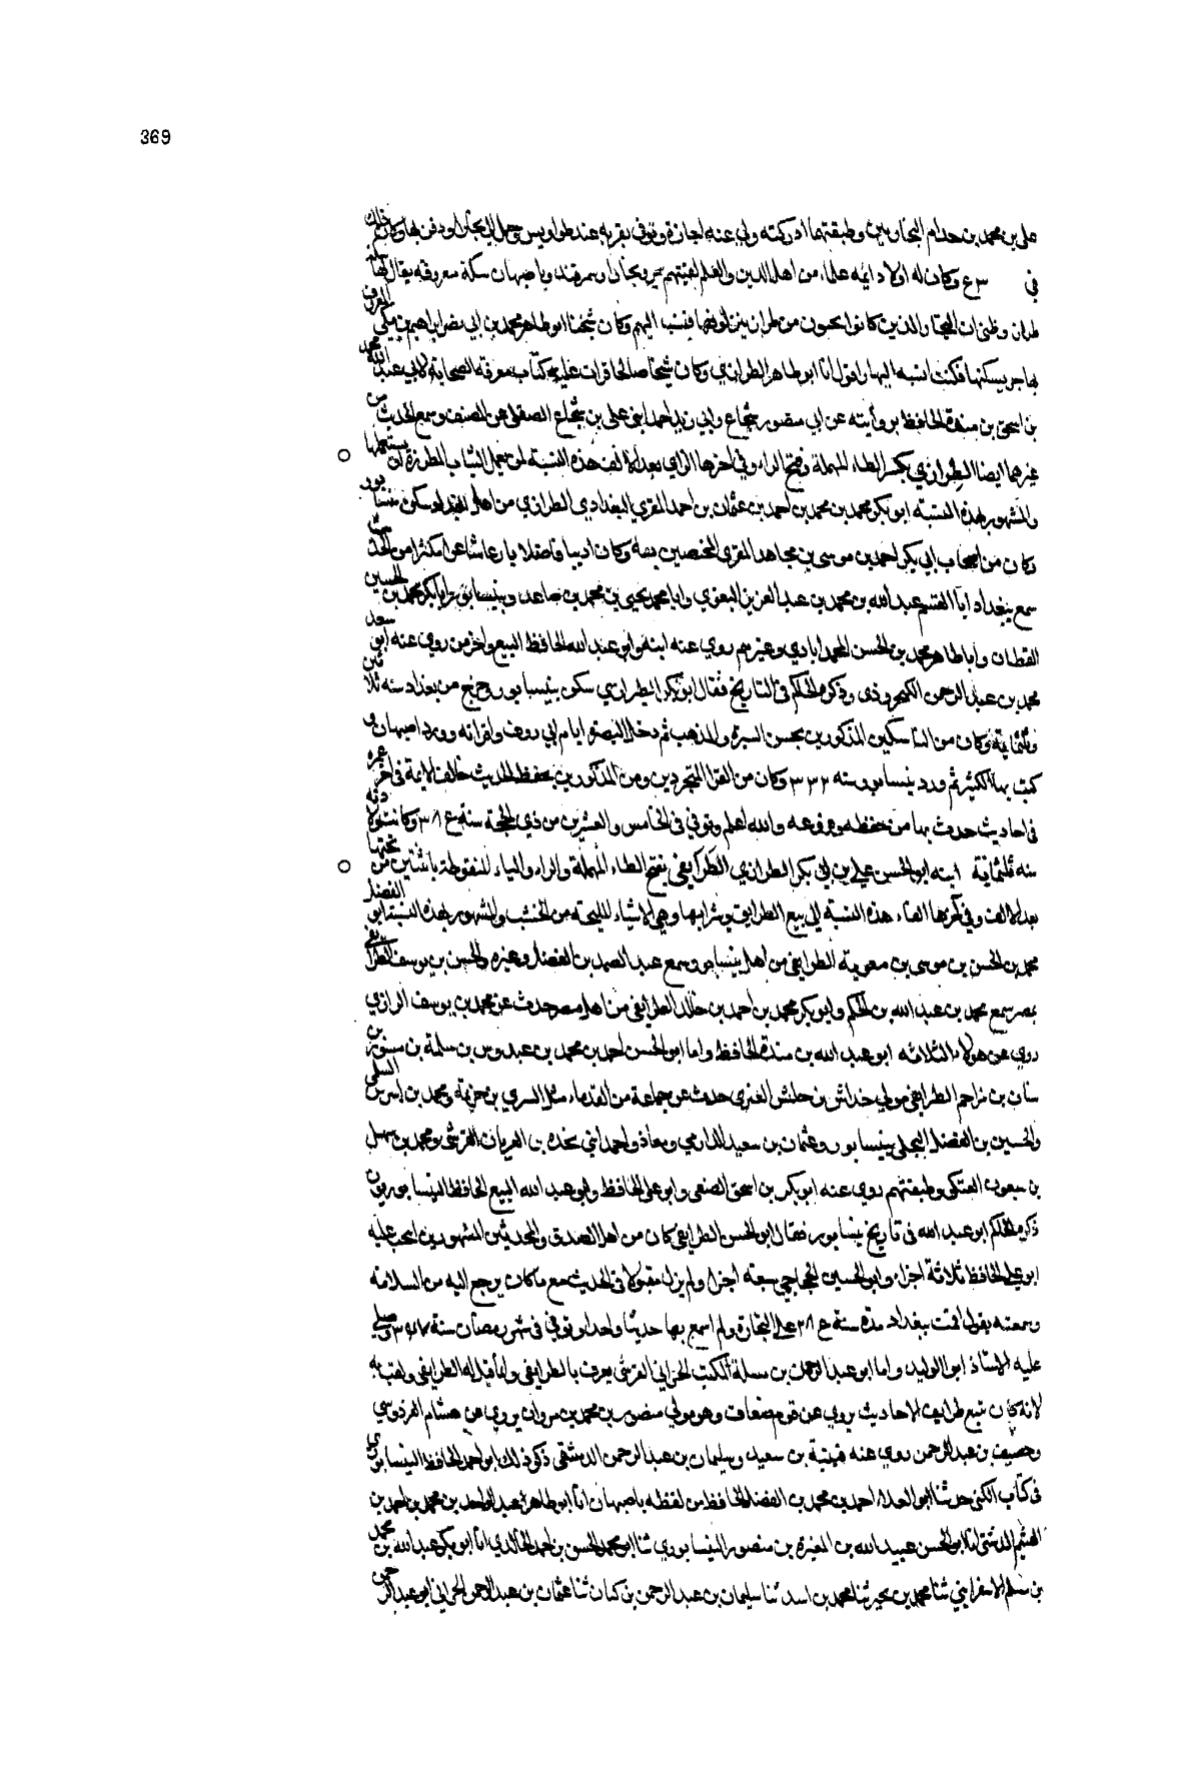 369
علي بن محمد بن حدام البخاريين وطبقتهما ادركته ولي عنه اجازة وتوفي بقرية عند طواويس وحمل الي بخارا ودفن بها وكان ذلك
في ع٣ وكان له اولاد ائمه علماء من اهل الدين والعلم لقيتهم بمرو وبخارا وسمرقند وباصبهان سكة معروفه يقال لها
طران وظني ان التجار الذين كانوا يجون من طران ينزلونها فنسب اليهم وكان شيخنا ابو طاهر محمد بن ابي نصر ابراهيم بن مكي المعروف
بهاجر يسكنها فكنت انسبه اليها واقول انا ابو طاهر الطرازي وكان شيخا صالحا قرات عليه كتاب معرفة الصحابة لابي عبد الله محمد
بن اسحق بن مندة الحافظ بروايته عن ابي منصور شجاع وابي زيد احمد ابني علي بن شجاع الصقلي عن المصنف وسمع الحديث من
غيرهما ايضا الطِرازي بكسر الطاء المهملة وفتح الراء وفي اخرها الزاي بعد الالف هذه النسبة لمن يعمل الثياب المطرزة او يستعملها
والمشهور بهذه النسبة ابو بكر محمد بن محمد بن احمد بن عثمان بن احمد المقري البغدادي الطرازي من اهل بغداد سكن نيسابور
وكان من اصحاب ابي بكر احمد بن موسى بن مجاهد المقري المختصين به وكان اديبا فاضلا بارعا شاعرا مكثرا من الحديث
سمع ببغداد ابا القسم عبد الله بن محمد بن عبد العزيز البغوي وابا محمد يحيى بن محمد بن صاعد وبنيسابور ابا بكر محمد بن الحسين
القطان وابا طاهر محمد بن الحسن المحمداباذي وغيرهم روي عنه ابنه وابو عبد الله الحافظ البيع واخر من روي عنه ابو سعد
محمد بن عبد الرحمن الكنجروذي وذكره الحاكم في التاريخ فقال ابو بكر الطرازي سكن بنيسابور وخرج من بغداد سنه ثلاثين
وثلثماية وكان من الناسكين المذكورين بحسن السيرة والمذهب ثم دخل البصرة ايام ابي روق واقرانه وورد اصبهان و
كتب بها الكثير ثم ورد نيسابور سنه ٣٣٢ وكان من القرا المجردين ومن المذكورين بحفظ الحديث خالف الايمة في اخر عمره
في احاديث حدث بها من حفظه وفروعه والله اعلم وتوفي في الخامس والعشرين من ذي الحجة سنة ٣٨ع وكانت ولادته
سنه ثلثماية ابنه ابو الحسن علي بن ابي بكر الطرازي الطَرائفي بفتح الطاء المهملة والراء والياء المنقوطة باثنتين من تحتها
بعد الالف وفي آخرها الفاء هذه النسبة الي بيع الطرايف وشرايها وهي الاشياء المليحة من الخشب والمشهور بهذه النسبة ابو الفضل
محمد بن الحسن بن موسى بن معوية الطرايفي من اهل نيسابور سمع عبد الصمد بن الفضل وغيره والحسن بن يوسف الطرايفي
بمصر سمع محمد بن عبد الله بن الحكم وابو بكر محمد بن احمد بن خالد الطرايفي من اهل مصر حدث عن محمد بن يوسف الرازي
روي عن هولاء الثلاثه ابو عبد الله بن مندة الحافظ واما ابو الحسن احمد بن محمد بن عبدوس بن سلمة بن مسور بن
سنان بن مزاحم الطرايفي مولي خداش بن حلبس العنزي حدث عن جماعة من القدماء مثل السري بن خزيمه ومحمد بن اشرس السلمي
والحسين بن الفضل البجلي بنيسابور وعثمان بن سعيد الدارمي ومعاذ واحمد ابني نجده بن العريان القرشي ومحمد بن سهل
بن العتكي وطبقتهم روي عنه ابو بكر بن اسحق الصبغي وابو علي الحافظ وابو عبد الله البيع الحافظ النيسابوريون
ذكره الحاكم ابو عبد الله في تاريخ نيسابور فقال ابو الحسن الطرايفي كان من اهل الصدق والمحدثين المشهورين انتخب عليه
ابو علي الحافظ ثلاثة اجزاء وابو الحسين الحجاجي سبعة اجزا ولم يزل مقبولا في الحديث مع ما كان يرجع اليه من السلامة
وسمعته يقول اقمت ببغداد مدة سنة ٢٨ع علي التجارة ولم اسمع بها حديثا واحدا وتوفي في شهر رمضان سنة ٣٤٧ وصلي
عليه الاستاذ ابو الوليد واما ابو عبد الرحمن بن مسلمة المكتب الحراني القرشي يعرف بالطرايفي وانما قيل له الطرايفي ولقب به
لانه كان يتبع طرايف الاحاديث يروي عن قوم ضعاف وهو مولي منصور بن محمد بن مروان يروي عن هشام الفردوسي
وخصيف بن عبد الرحمن روي عنه قتيبة بن سعيد وسليمان بن عبد الرحمن الدمشقي ذكر ذلك ابو احمد الحافظ النيسابوري
في كتاب الكني حدثنا ابو العلاء احمد بن محمد بن الفضل الحافظ من لفظه باصبهان انا ابو طاهر عبد الواحد بن محمد بن احمد بن
الهيثم الدشتي انا ابو الحسن عبيد الله بن المعتز بن منصور النيسابوري ثنا ابو محمد الحسن بن احمد الخالدي انا ابو بكر عبد الله بن محمد
بن مسلم الاسفرايني ثنا محمد بن بحير ثنا محمد بن اسد ثنا سليمان بن عبد الرحمن بن كنان ثنا عثمان بن عبد الرحمن الحراني ابو عبد الرحمن